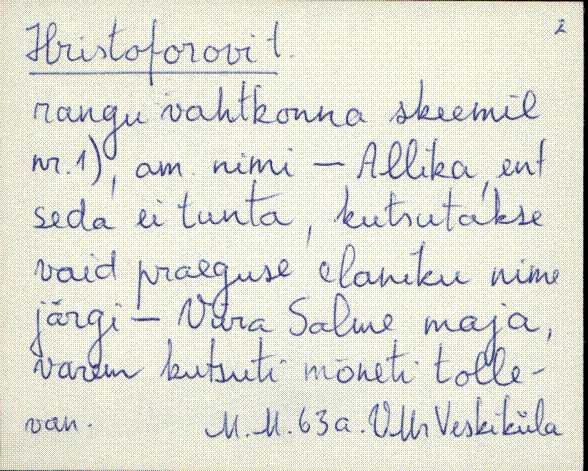 2
Hristoforovi t.
rangu vahtkonna skeemil
nr.1), am. nimi – Allika, ent
seda ei tunta, kutsutakse
vaid praeguse elaniku nime
järgi – Vära Salme maja,
varem kutsuti mõneti tolle-
van. M.M. 63 a. VMr Vesküla